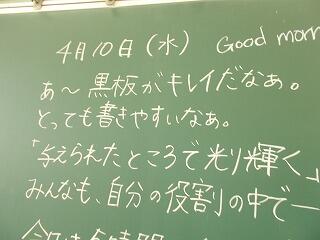 4月10日(水) Good morn
あ〜黒板がキレイだなぁ。
とっても書きやすいなぁ。
「与えられたところで光り輝く」
みんなも、自分の役割の中で一
今日は
時間